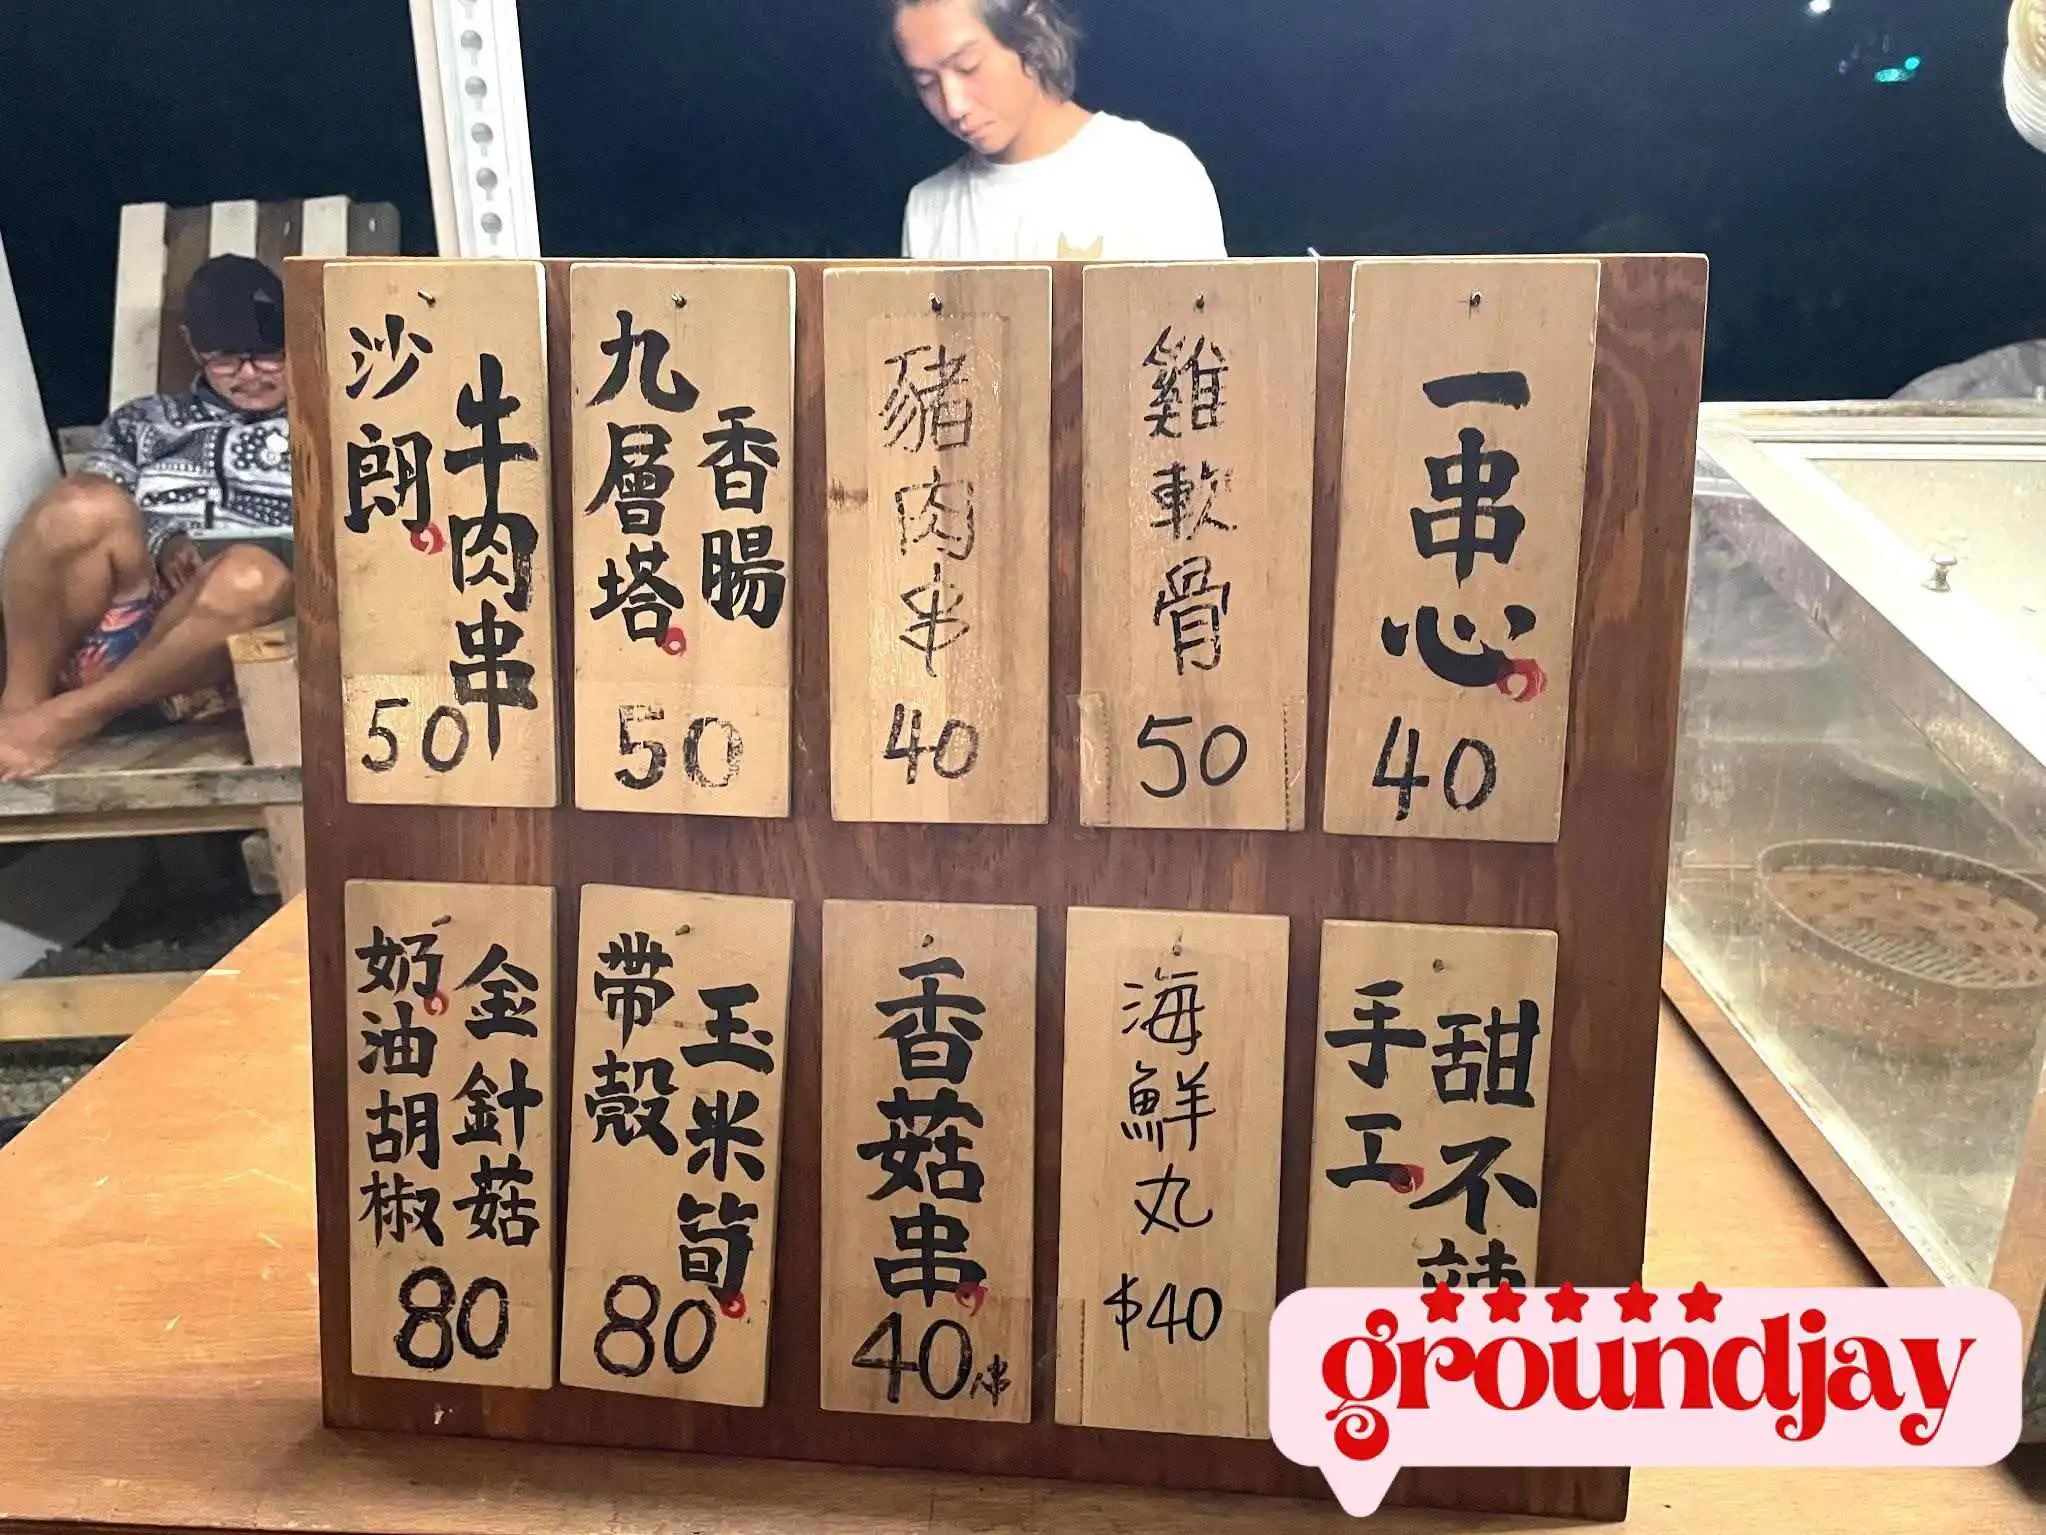 沙朗
牛肉串
50
九層塔
香腸
50
豬肉串
40
雞軟骨
50
一串心
40
奶油胡椒
金針菇
80
帶殼
玉米筍
80
香菇串
40/串
海鮮丸
$40
手工
甜不辣
groundjay